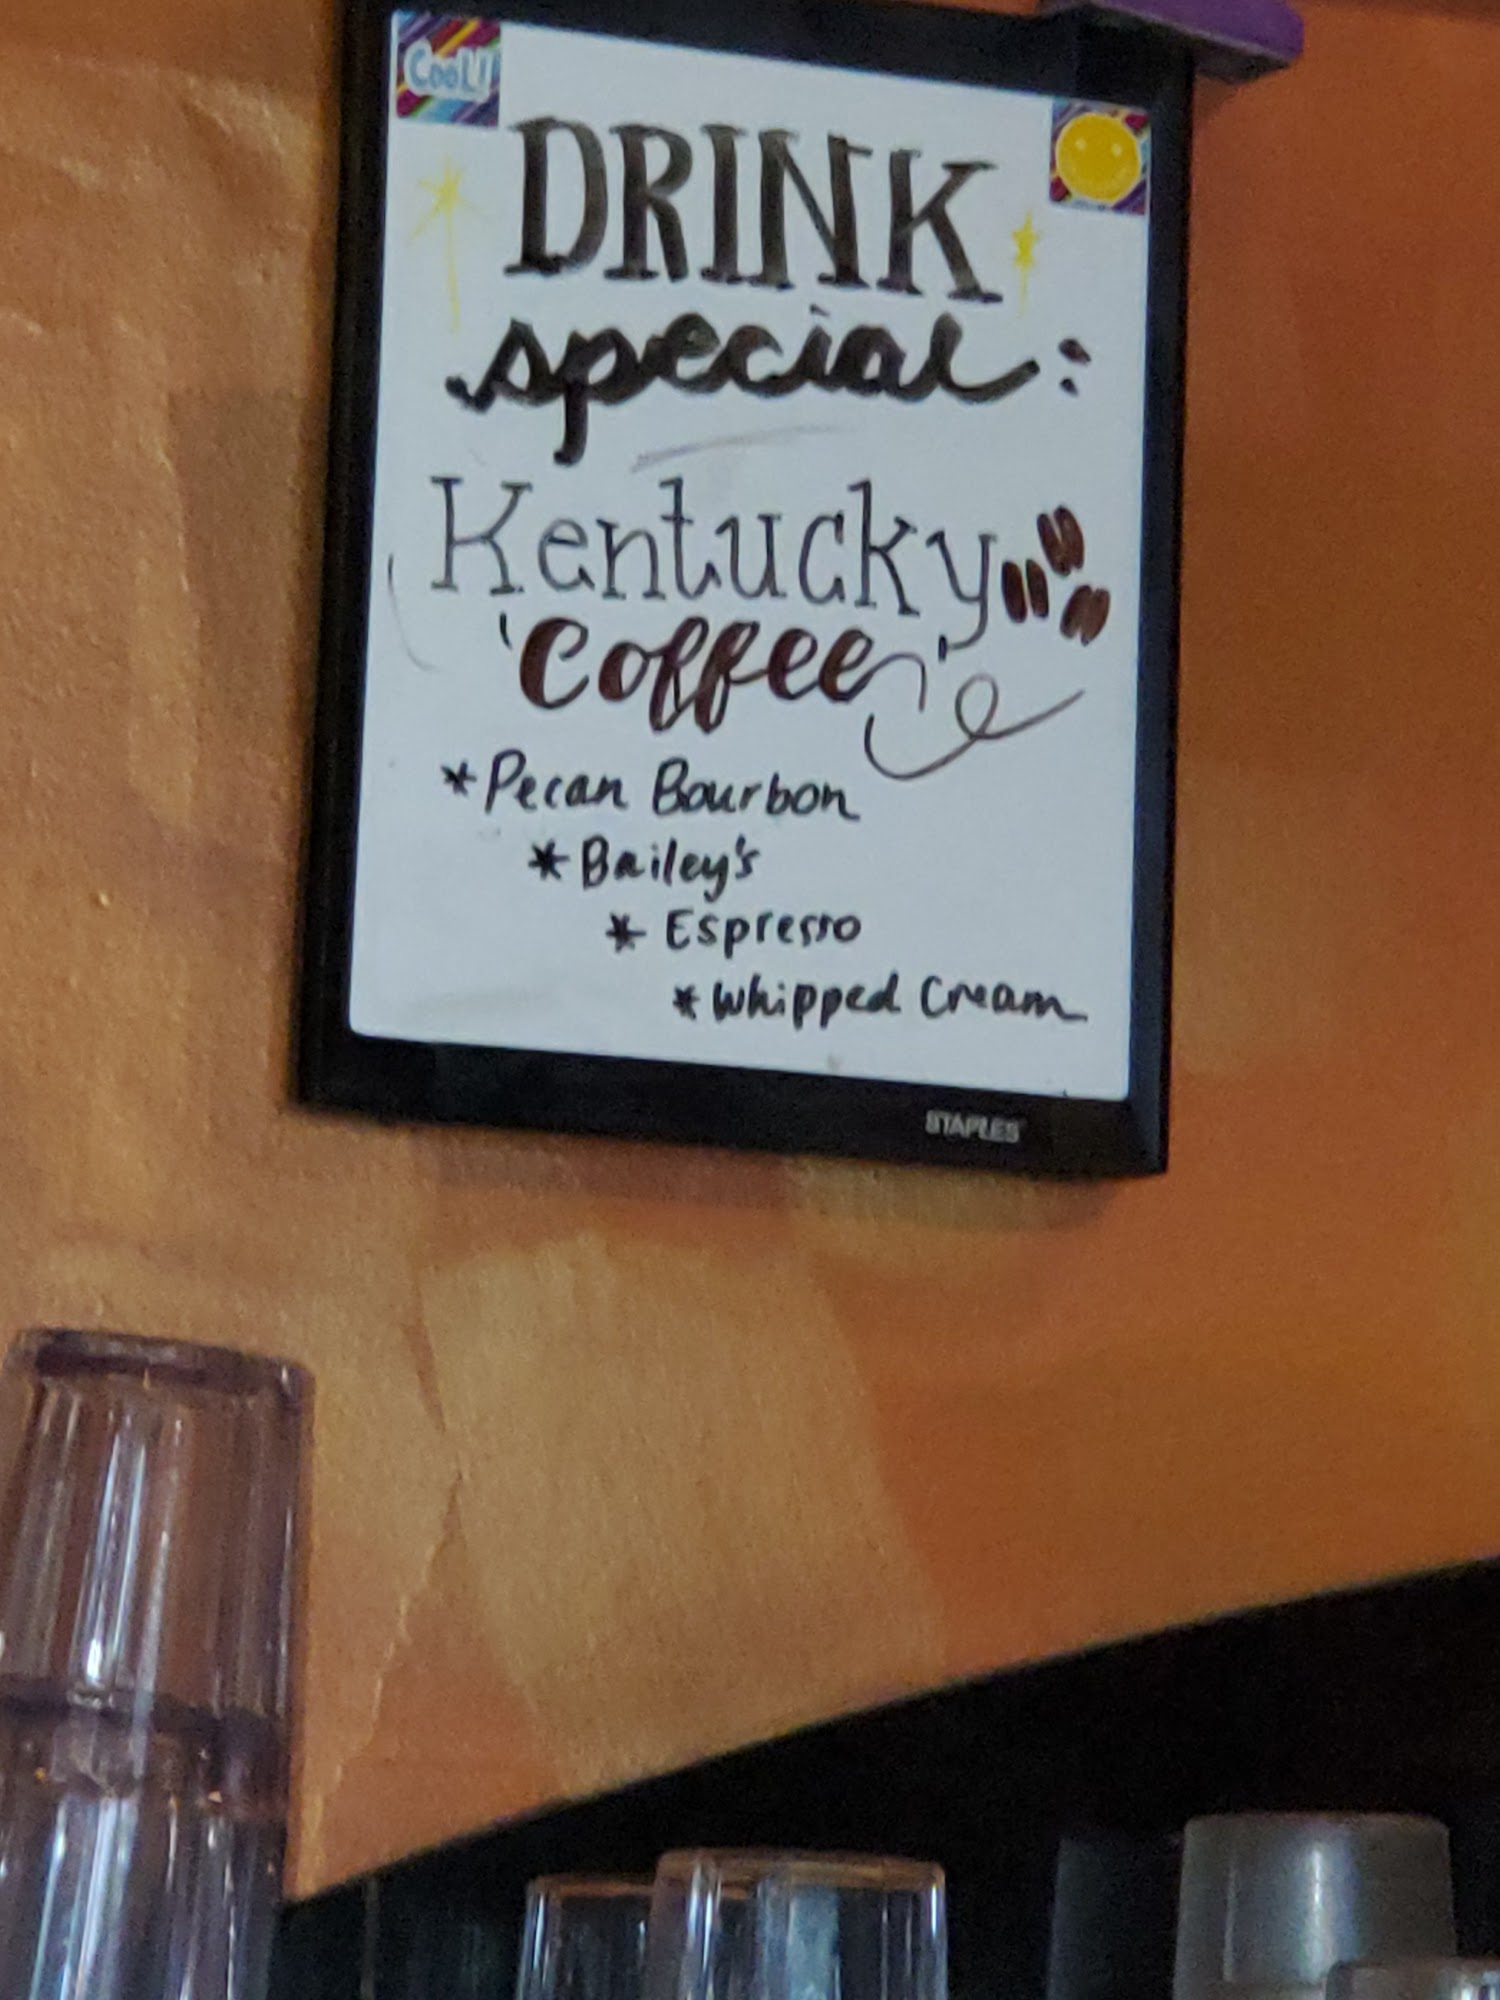 COOL!
DRINK
special:
Kentucky
'Coffee'
*Pecan Bourbon
*Bailey's
* Espresso
* Whipped Cream
STAPLES